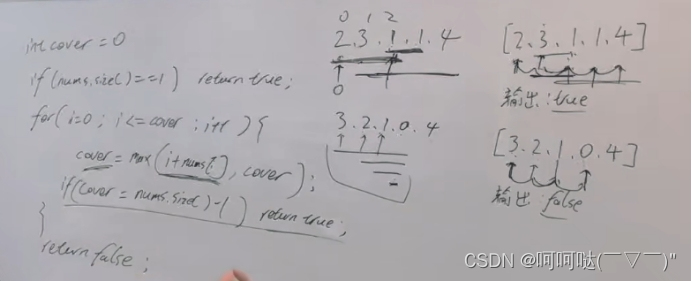 int cover = 0
if (nums.size() == 1) return true;
for (i=0; i<=cover; i++) {
cover = max(i+nums[i], cover);
if (cover = nums.size()-1) return true;
}
return false;
0 1 2
2.3.1.1.4
0
3.2.1.0.4
[2.3.1.1.4]
输出:true
[3.2.1.0.4]
输出:false
CSDN @呵呵哒(￣▽￣)"